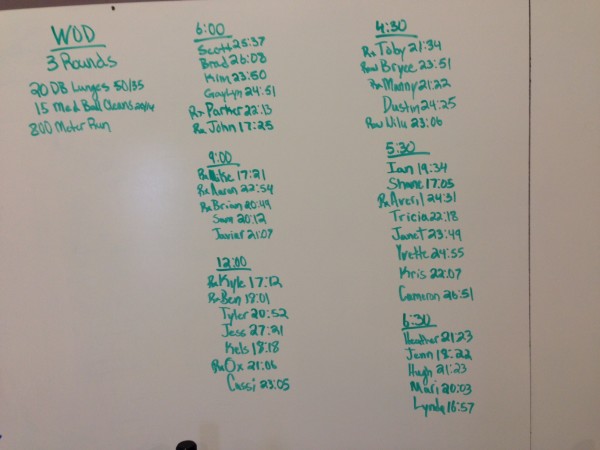 WOD
3 Rounds
20 DB Lunges 50/35
15 Med Ball Cleans 20/14
800 Meter Run
6:00
Scott 25:37
Brad 26:08
Kim 23:50
Gaylyn 24:51
Rx Parker 22:13
Rx John 17:25
9:00
Rx Mike 17:21
Rx Aaron 22:54
Rx Brian 20:49
Sam 20:12
Javier 21:07
12:00
Rx Kyle 17:12
Rx Ben 18:01
Tyler 20:52
Jess 27:21
Kels 18:18
Rx Ox 21:06
Cassi 23:05
4:30
Rx Toby 21:34
Bryce 23:51
Rx Manny 21:22
Dustin 24:25
23:06
5:30
Ian 19:34
Shane 17:05
Rx Averil 24:31
Tricia 22:18
Janet 23:49
Yvette 24:55
Kris 22:07
Cameron 26:51
6:30
Heather 21:23
Jenn 18:22
Hugh 21:23
Mari 20:03
Lynda 16:57